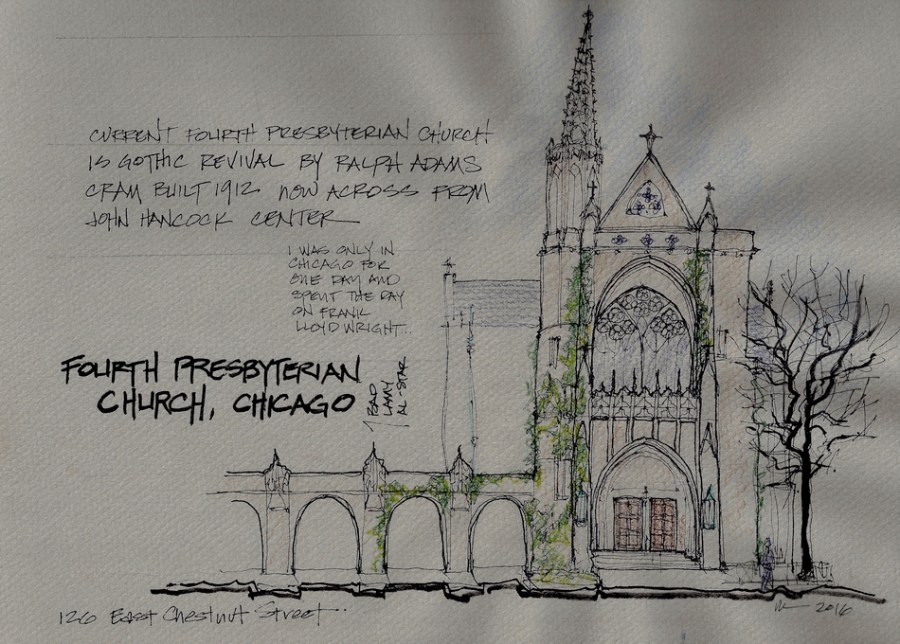 CURRENT FOURTH PRESBYTERIAN CHURCH
IS GOTHIC REVIVAL BY RALPH ADAMS
CRAM BUILT 1912 NOW ACROSS FROM
JOHN HANCOCK CENTER
I WAS ONLY IN
CHICAGO FOR
ONE DAY AND
SPENT THE DAY
ON FRANK
LLOYD WRIGHT.
FOURTH PRESBYTERIAN
CHURCH, CHICAGO
LAMY
AL-STAR
126 East Chestnut Street..
2016